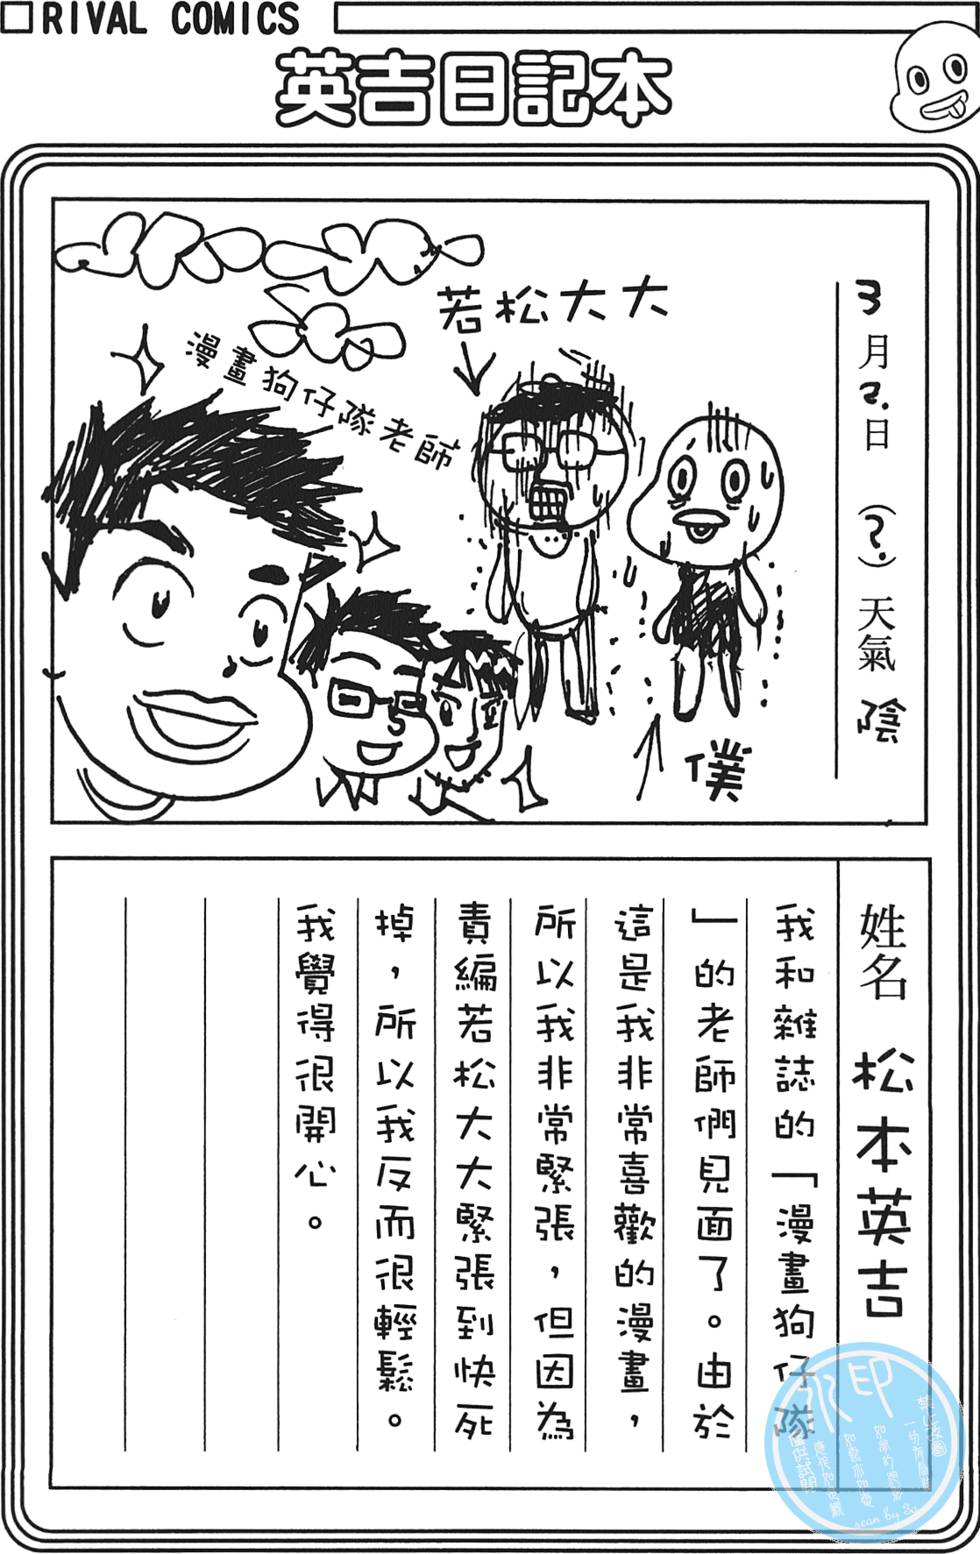 RIVAL COMICS
英吉日記本
3月2.日（?.）天氣 陰
若松大大
漫畫狗仔隊老師
僕
姓名 松本英吉
我和雜誌的「漫畫狗仔隊
」的老師們見面了。由於
這是我非常喜歡的漫畫，
所以我非常緊張，但因為
責編若松大大緊張到快死
掉，所以我反而很輕鬆。
我覺得很開心。
水印
scan by